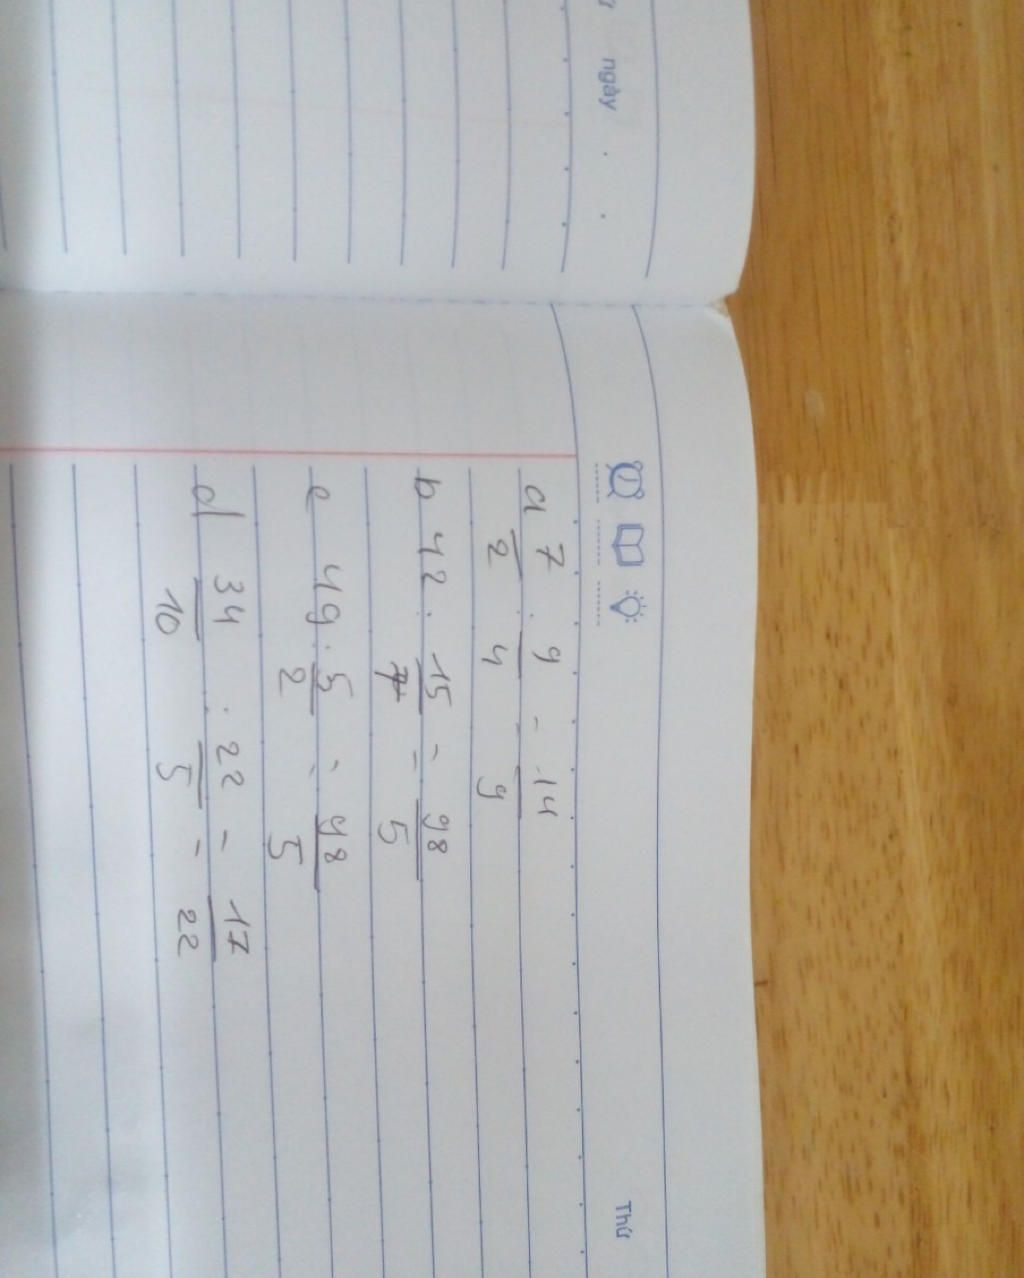 ngày
Thứ
a 7/2 : 9/4 = 14/9
b 42 : 15/7 = 98/5
c 49 : 5/2 = 98/5
d 34/10 : 22/5 = 17/22